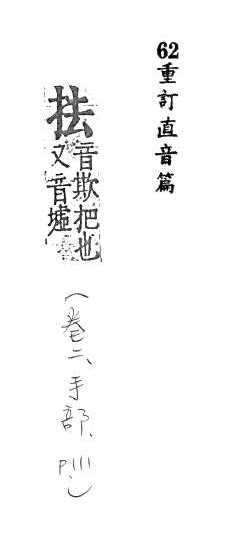 62重訂直音篇
抾
音欺把也
又音墟
(卷二、手部、P111)